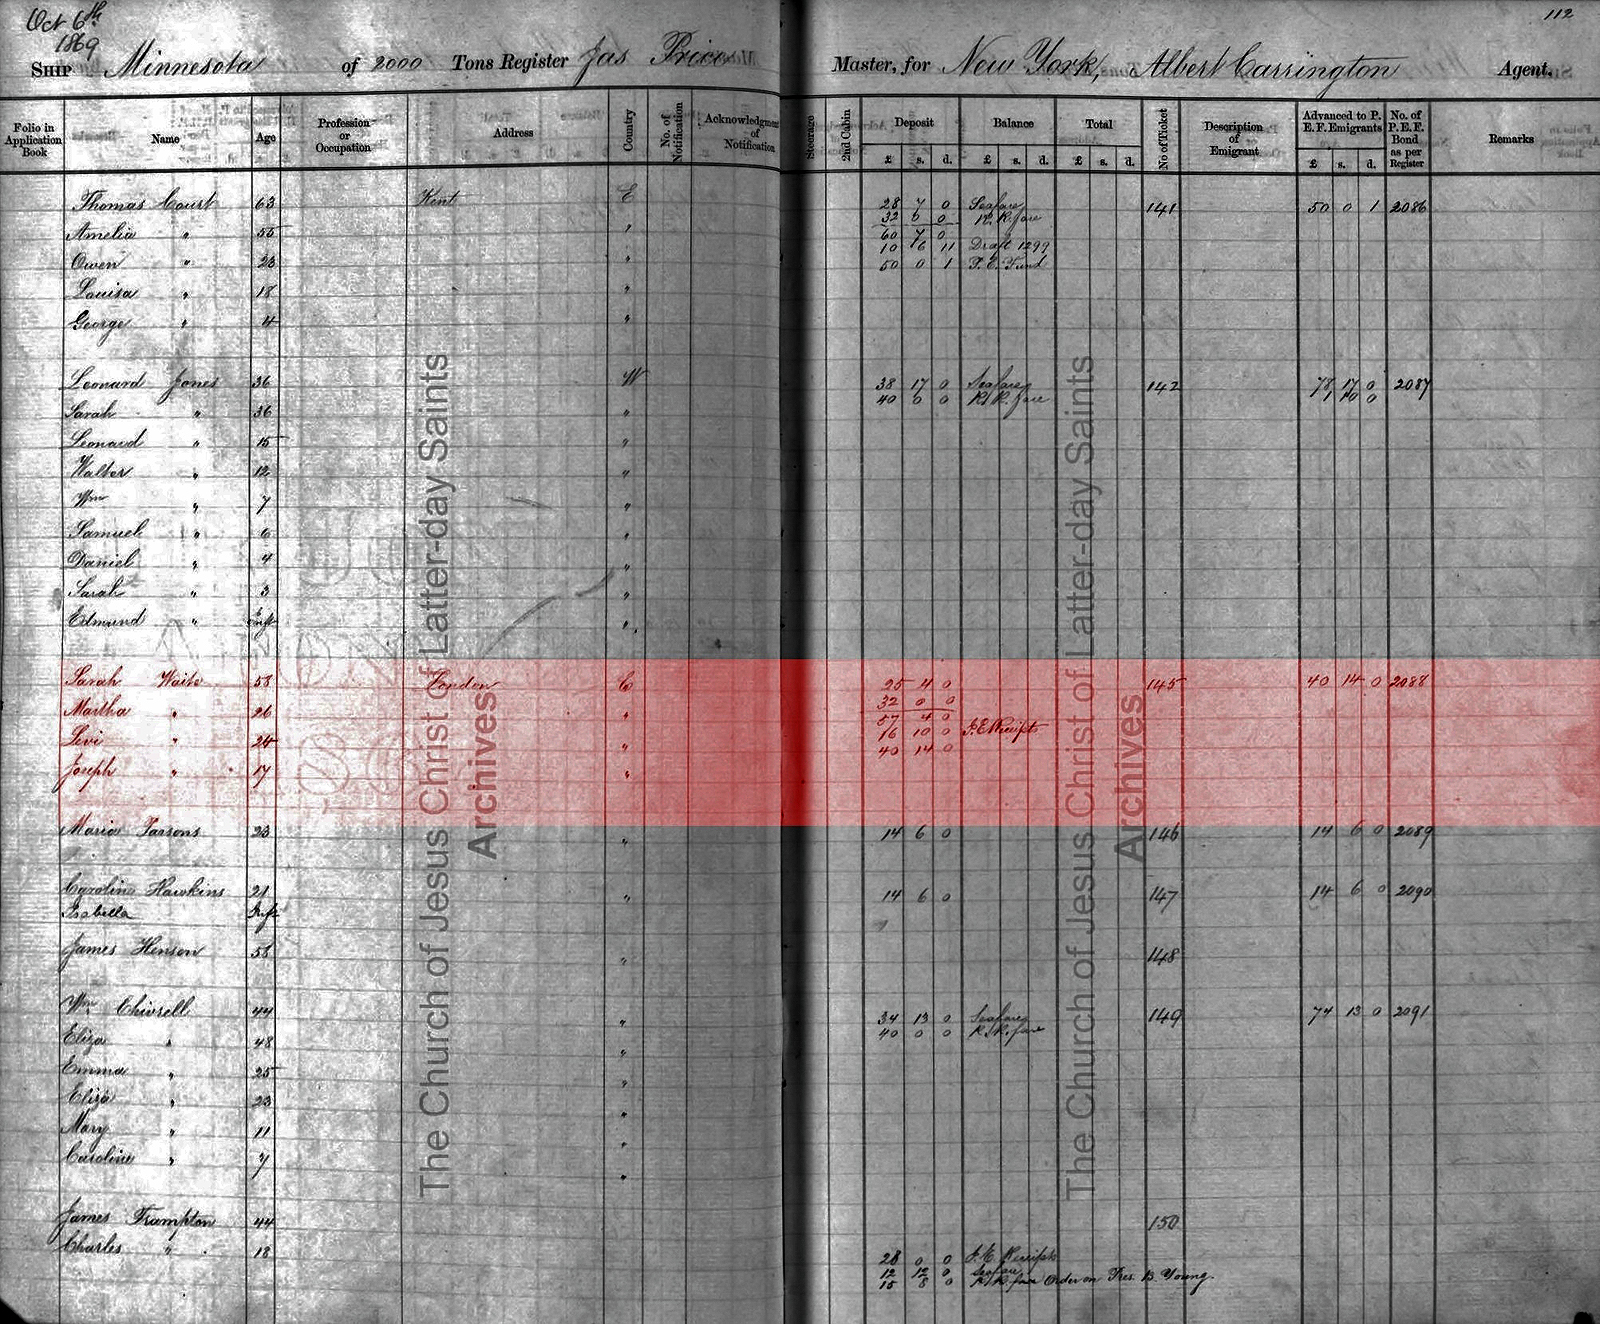 Oct 6th
1869
112
SHIP Minnesota of 2000 Tons Register Jas Price Master, for New York, Albert Carrington Agent.
Folio in Application Book Name Age Profession or Occupation Address Country No. of Notification Acknowledgment of Notification Steerage 2nd Cabin Deposit Balance Total No of Ticket Description of Emigrant Advanced to P. E. F. Emigrants No. of P. E. F. Bond as per Register Remarks
£ s. d. £ s. d. £ s. d. £ s. d.
Thomas Court 63 Kent E 28 7 0 Seafare 141 50 0 1 2086
32 0 0 R. R. fare
Amelia " 55 " 60 7 0
10 6 11 Draft 1299
Owen " 23 " 50 0 1 P. E. Fund
Louisa " 18 "
George " 4 "
Leonard Jones 36 W 38 17 0 Seafare 142 78 17 0 2087
40 0 0 R. R. fare 1 10 0
Sarah " 36 "
Leonard " 15 "
Walter " 12 "
Wm " 7 "
Samuel " 6 "
Daniel " 4 "
Sarah " 3 "
Edmund " Inft "
Sarah Waite 53 London E 25 4 0 145 40 14 0 2088
32 0 0
Martha " 26 " 57 4 0
16 10 0 P. E. Receipts
Levi " 24 " 40 14 0
Joseph " 17 "
Maria Parsons 23 " 14 6 0 146 14 6 0 2089
Caroline Hawkins 21 " 14 6 0 147 14 6 0 2090
Isabella Inft
James Henson 58 " 148
Wm Chivrell 44 " 34 13 0 Seafare 149 74 13 0 2091
40 0 0 R. R. fare
Eliza " 48 "
Emma " 25 "
Eliza " 23 "
Mary " 11 "
Caroline " 7 "
James Frampton 44 150
Charles " 18
28 0 0 P. E. Receipts
12 12 0 Seafare
15 8 0 R. R. fare Order on Pres. B. Young.
The Church of Jesus Christ of Latter-day Saints
Archives
The Church of Jesus Christ of Latter-day Saints
Archives